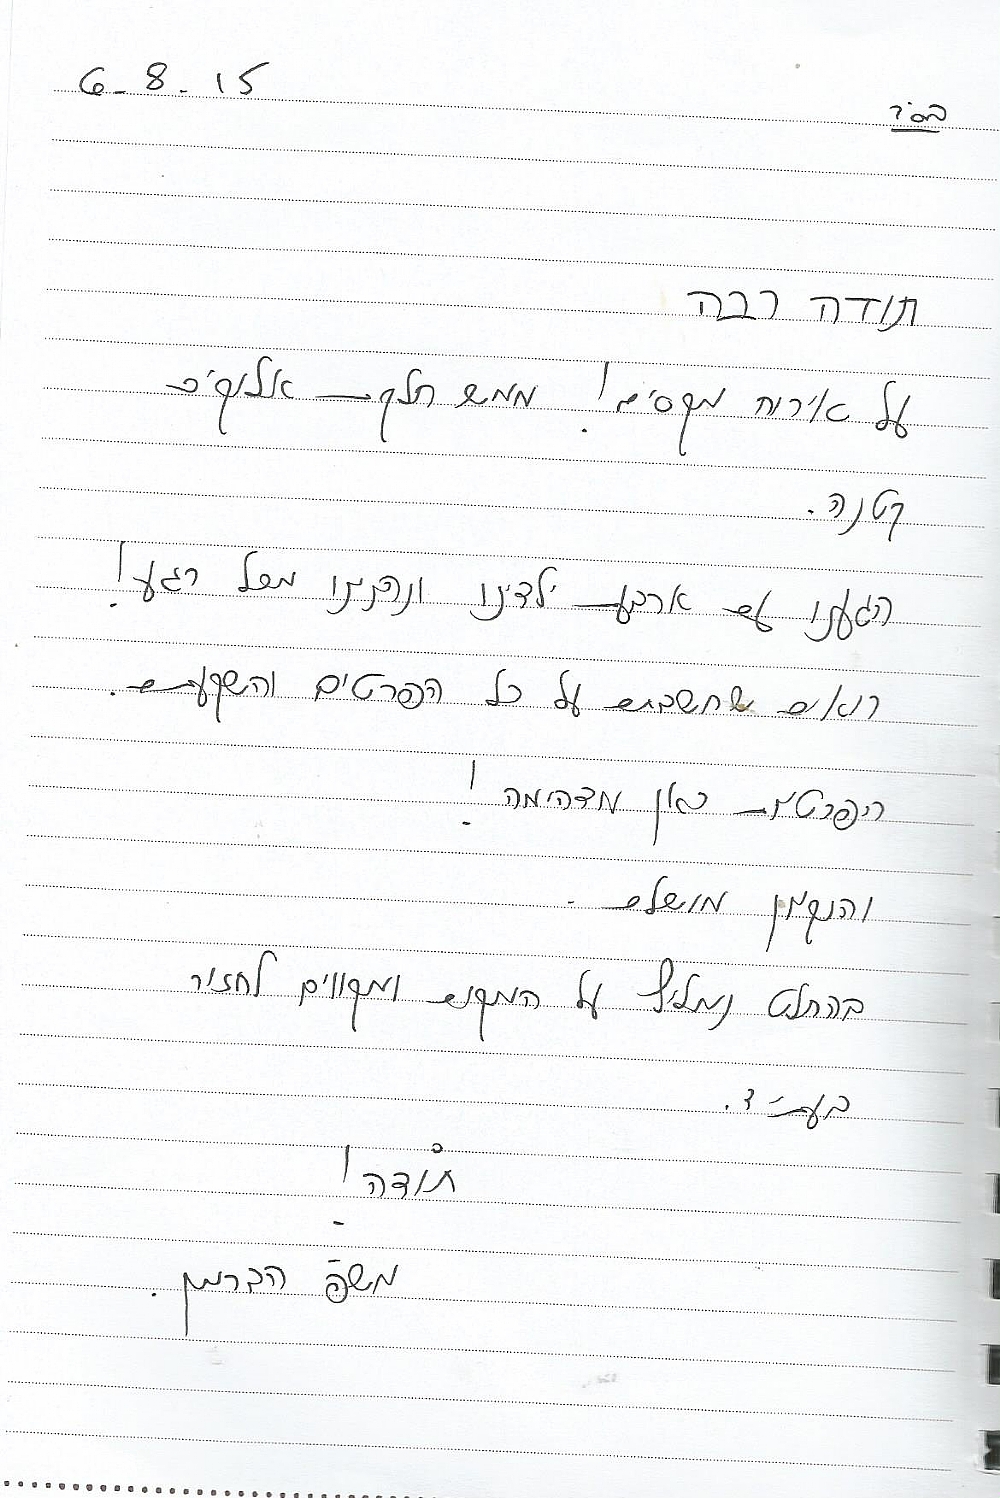 6-8-15
בס"ד
תודה רבה
על אירוח מקסים! ממש חלקת אלוקים
קטנה.
הגענו עם ארבעת ילדינו ונהנינו מכל רגע!
רואים שחשבתם על כל הפרטים והשקעתם.
הפרטיות כאן מדהימה!
והנקיון מושלם.
בהחלט נמליץ על המקום ומקווים לחזור
בעתיד.
תודה!
משפ' הברמן.